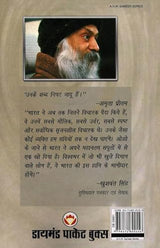 "उनके शब्द निपट जादू हैं।"
-अमृता प्रीतम
"भारत ने अब तक जितने विचारक पैदा किये हैं,
वे उनमें सबसे मौलिक, सबसे उर्वर, सबसे स्पष्ट
और सर्वाधिक सृजनशील विचारक थे। उनके जैसा
कोई व्यक्ति हम सदियों तक न देख पायेंगे। ओशो
के जाने से भारत ने अपने महानतम सपूतों में से
एक खो दिया है। विश्वभर में जो भी खुले दिमाग
वाले लोग हैं, वे भारत की इस हानि के भागीदार
होंगे।"
-खुशवंत सिंह
डायमंड पाकेट बुक्स